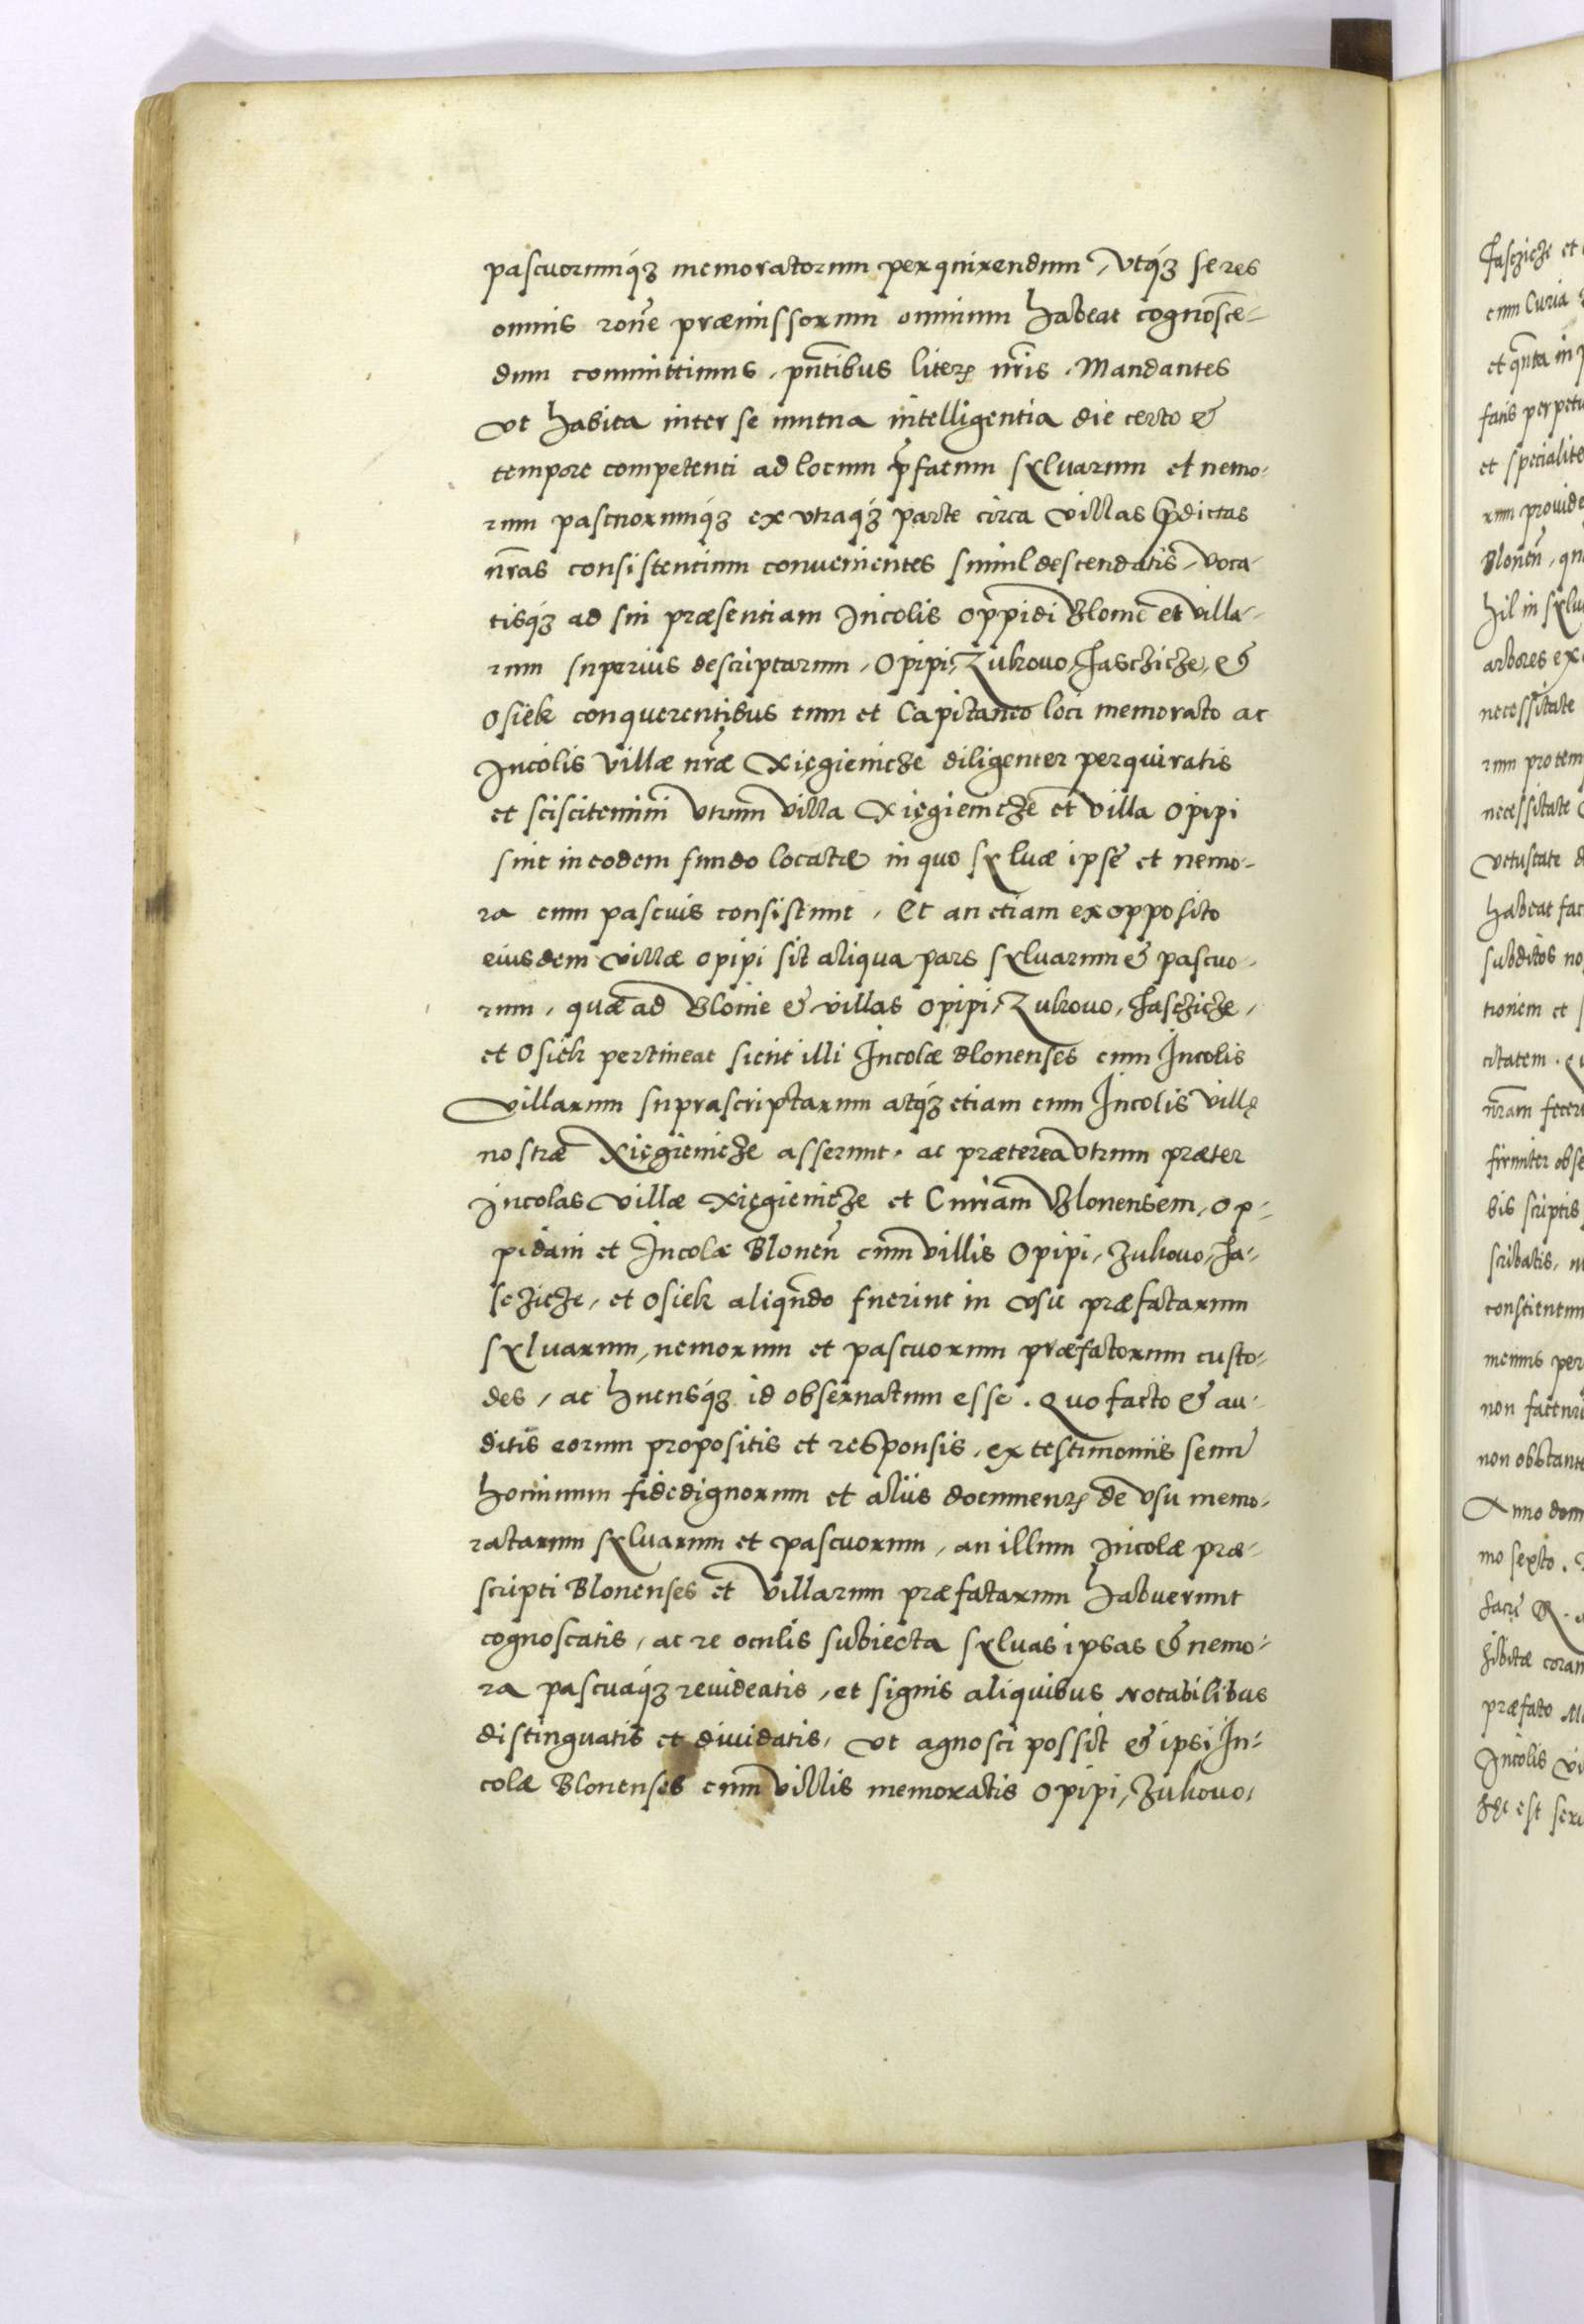 pascuorumq́ʒ memoratorum perquirendum, vtq́ʒ se res
omnis rōne præmissorum omnium habeat cognoscē-
dum committimus, pñtibus literꝭ nr̃is. Mandantes
vt habita inter se mutua intelligentia die certo &
tempore competenti ad locum p̃fatum sylvarum et nemo-
rum pascuorumq́ʒ ex vtraq́ʒ parte circa villas p̃dictas
nr̃as consistentium convenientes simul descendatis, voca-
tisq́ʒ ad sui præsentiam Incolis oppidi Blonie et villa-
rum superius descriptarum, Opipi, Zukovo, Jascziche, &
Osiek conquerentibus cum et Capitaneo loci memorato ac
Incolis villæ nr̃æ Xięgieniche diligenter perquiratis
et sciscitemini vtrum villa Xięgieniche et villa Opipi
sint in eodem fundo locatæ in quo sylvæ ipsę et nemo-
ra cum pascuis consistunt, Et an etiam ex opposito
eiusdem villæ Opipi sit aliqua pars sylvarum & pascuo-
rum, quæ ad Blonie & villas Opipi, Zukovo, Jascziche,
et Osiek pertineat sicut illi Incolæ Blonenses cum Incolis
villarum suprascriptarum atq́ʒ etiam cum Incolis villę
nostræ Xięgieniche asserunt, ac præterea vtrum præter
Incolas villæ Xięgieniche et Curiam Blonensem, op-
pidani et Incolæ Blonen̄ cum villis Opipi, Zukovo, Ja-
scziche, et Osiek aliqn̄do fuerint in vsu præfatarum
sylvarum, nemorum et pascuorum præfatorum custo-
des, ac hucusq́ʒ id observatum esse. Quo facto & au-
ditis eorum propositis et responsis, ex testimoniis senū
hominum fidedignorum et aliis documentꝭ de vsu memo-
ratarum sylvarum et pascuorum, an illum Incolæ præ-
scripti Blonenses et villarum præfatarum habuerunt
cognoscatis, ac re oculis subiecta sylvas ipsas & nemo-
ra pascuaq́ʒ revideatis, et signis aliquibus notabilibus
distinguatis et dividatis, vt agnosci possit & ipsi In-
colæ Blonenses cum villis memoratis Opipi, Zukovo,